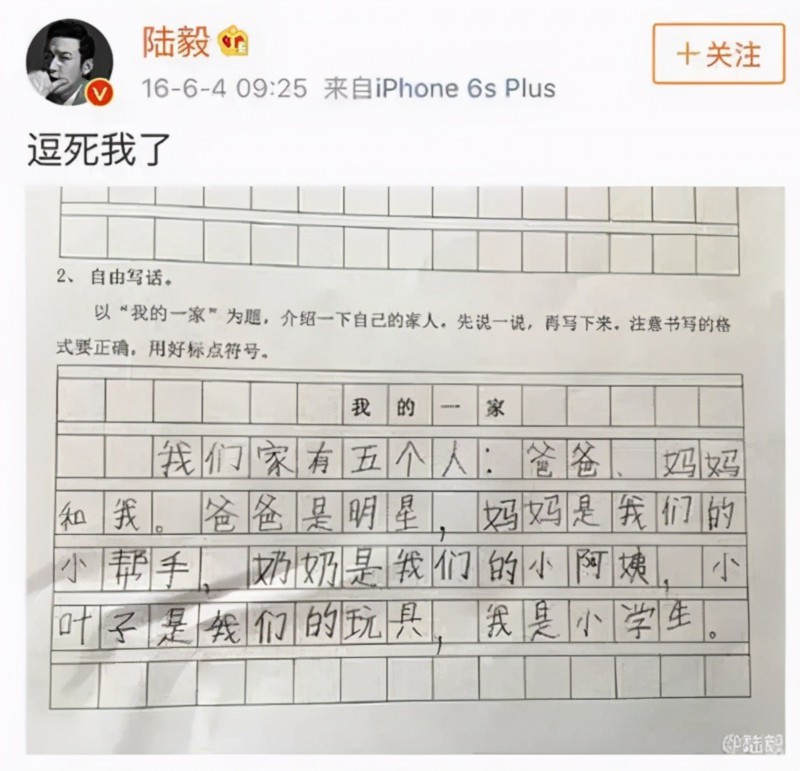 陆毅
+关注
16-6-4 09:25 来自iPhone 6s Plus
逗死我了
2、自由写话。
以“我的一家”为题，介绍一下自己的家人。先说一说，再写下来。注意书写的格
式要正确，用好标点符号。
我的一家
我们家有五个人：爸爸、妈妈
和我。爸爸是明星，妈妈是我们的
小帮手，奶奶是我们的小阿姨，小
叶子是我们的玩具，我是小学生。
@陆毅